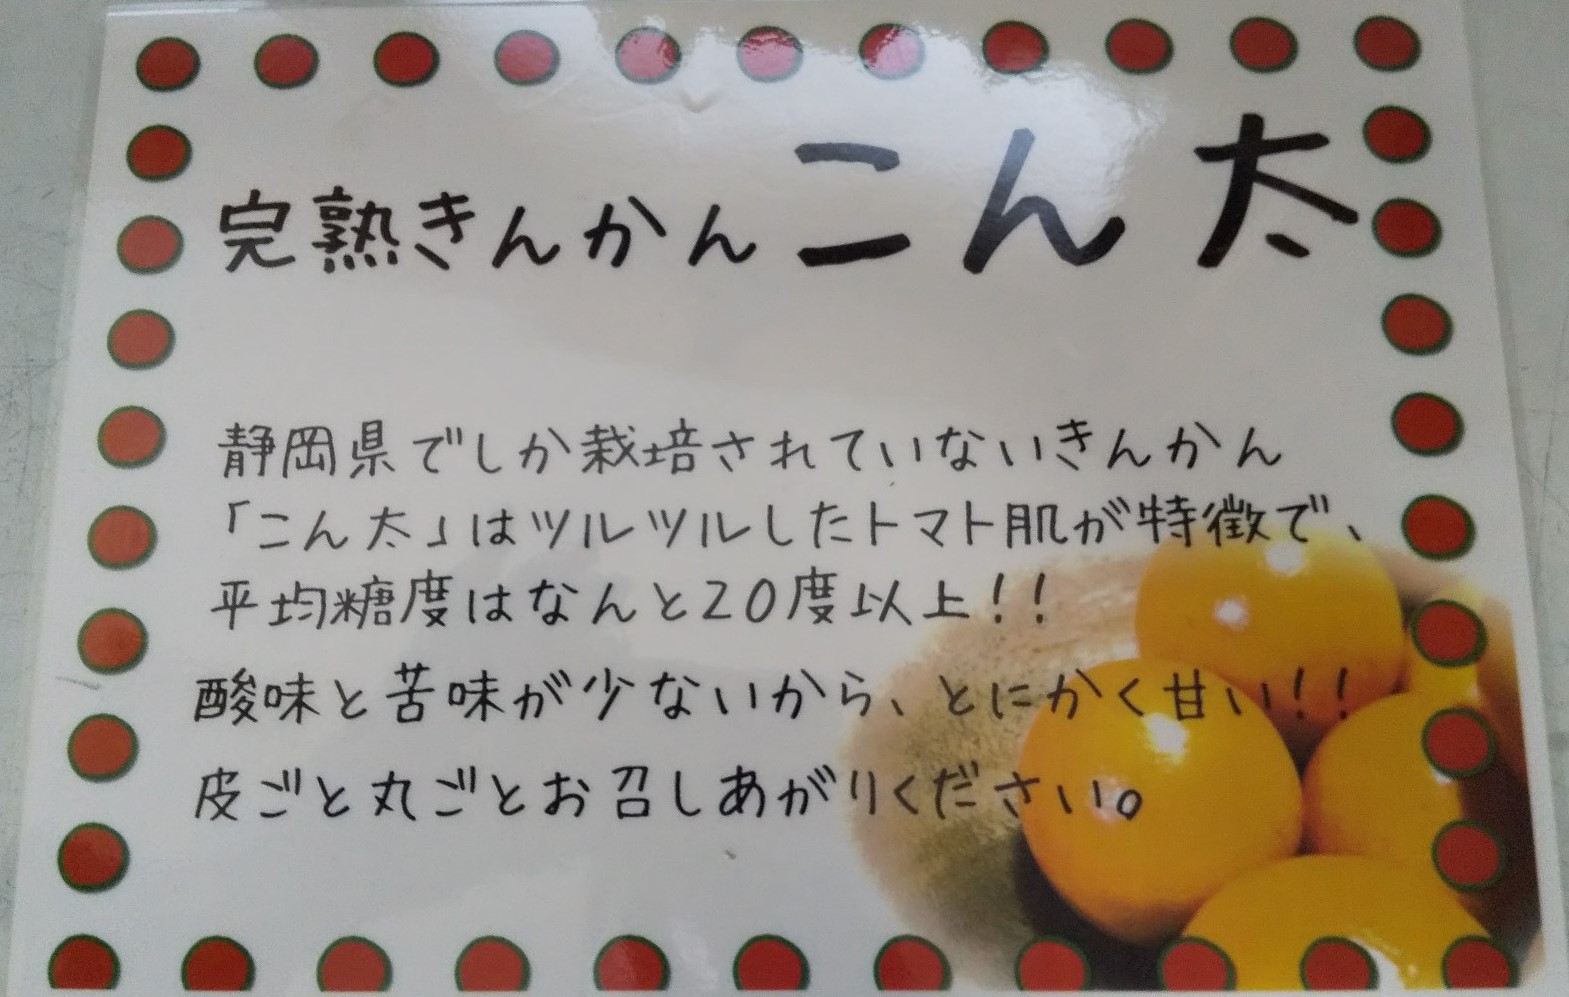 完熟きんかんこん太
静岡県でしか栽培されていないきんかん
「こん太」はツルツルしたトマト肌が特徴で、
平均糖度はなんと20度以上!!
酸味と苦味が少ないから、とにかく甘い!!
皮ごと丸ごとお召しあがりください。